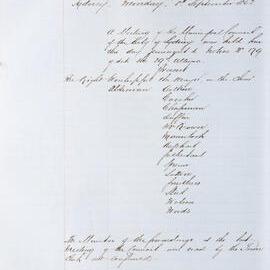 Sydney, Monday, 1st September 18
A Meeting of the Municipal Council
of the City of Sydney was held here
this day, pursuant to Notice No 179
of date the 29th
Present
The Right Worshipful the Mayor in the Chair
Aldermen
Caraher
Chapman
Murdoch
Raphael
Sutton
Smithers
Steel
Watson
Woods
The Minutes of the proceedings at the last
Meeting of the Council were read by the Town
Clerk and confirmed